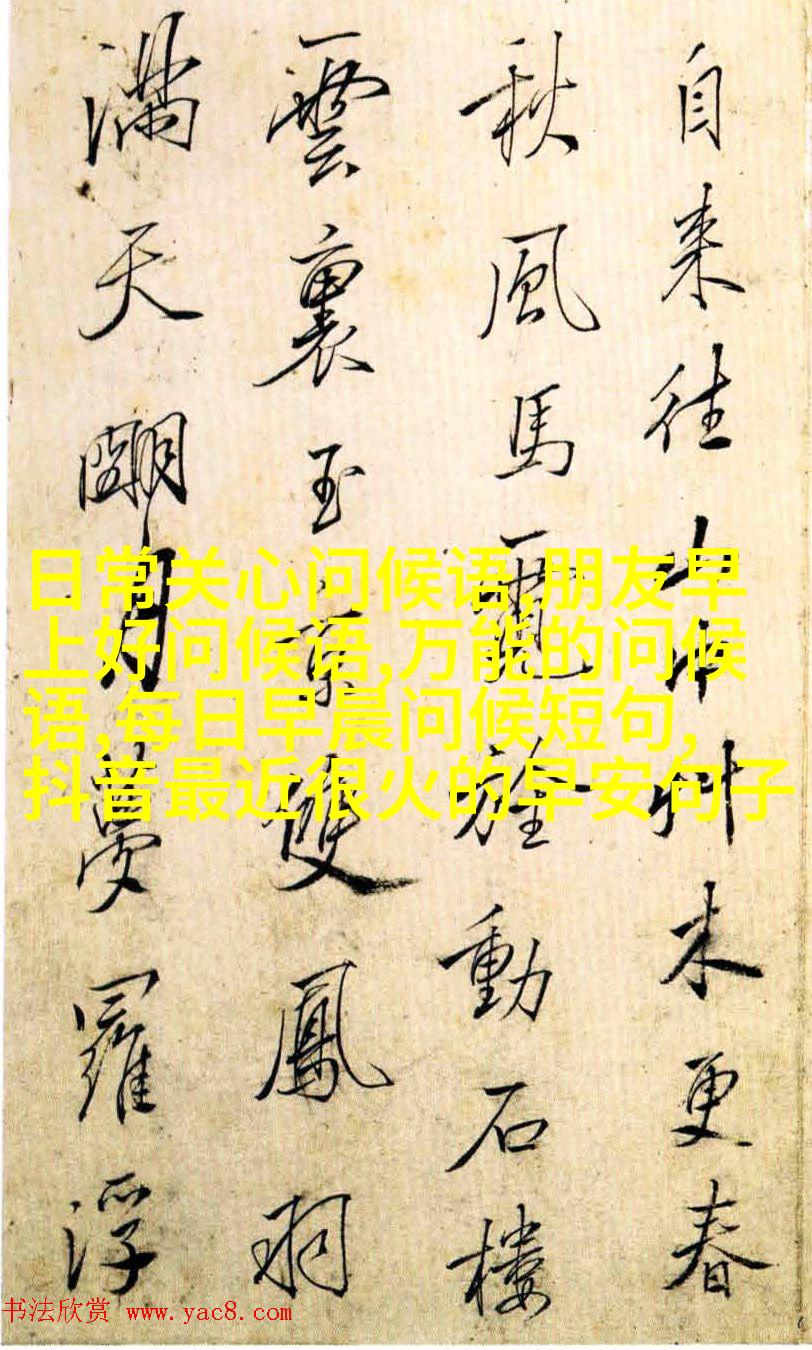 自来往山中草木更春
秋風馬耳旌動石樓
雲裏玉京雙鳳翔
滿天明月夢羅浮
日常关心问候语,朋友早
上好问候语,万能的问候
语,每日早晨问候短句,
抖音最近很火的早安句子
书法欣赏 www.yac8.com